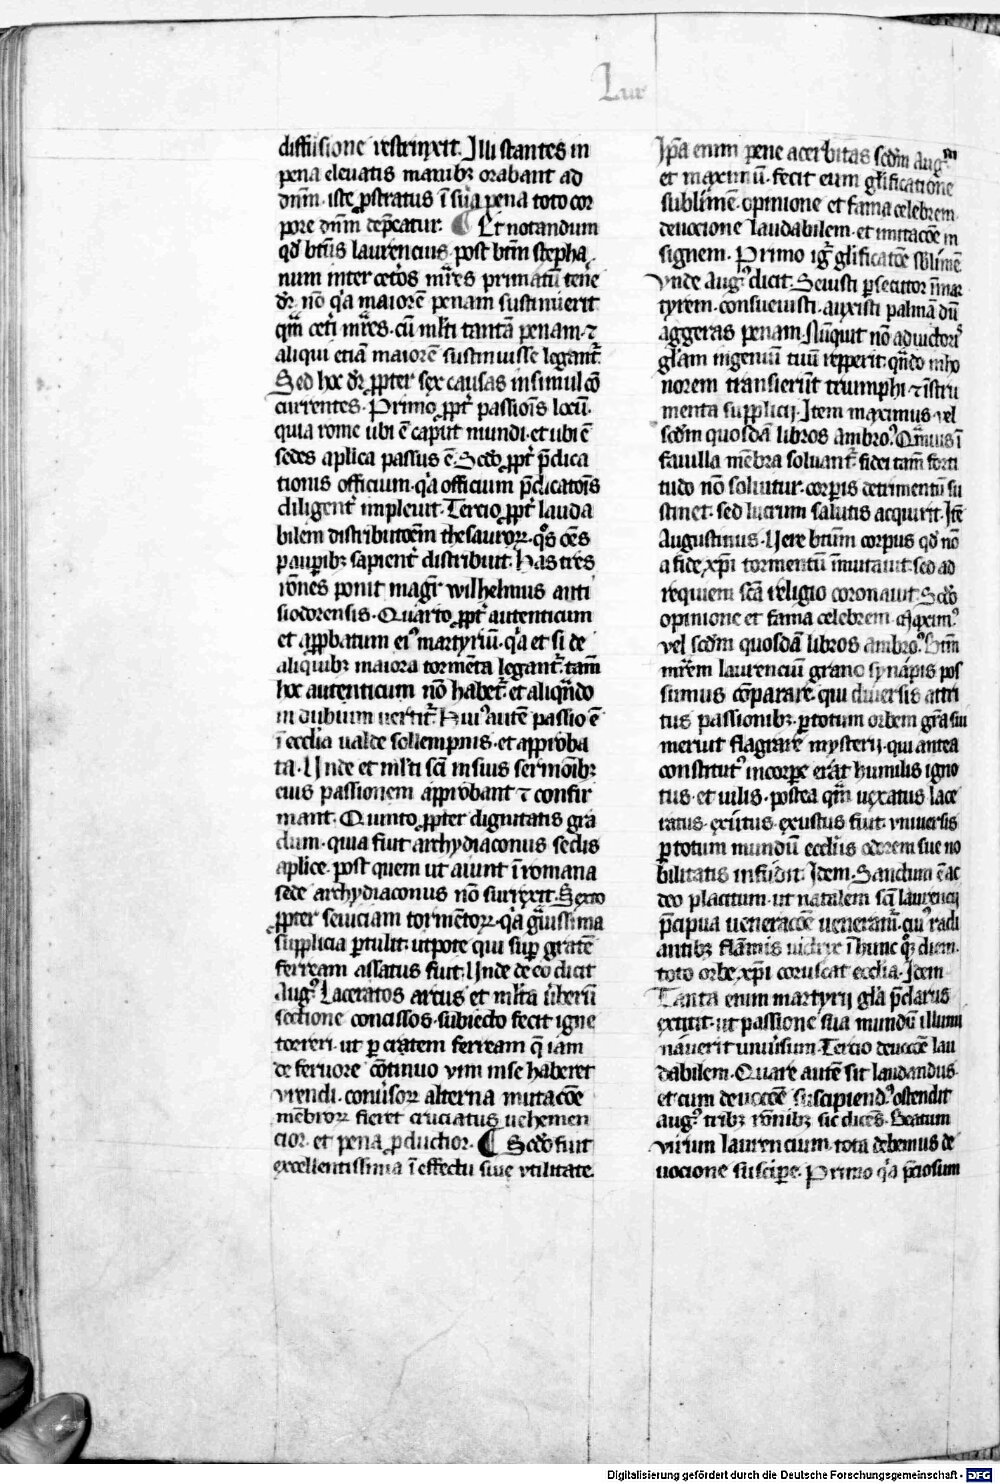 Laur
diffusione restrinxit. Illi stantes in
pena eleuatis manibꝫ orabant ad
dn̄m. iste ꝓstratus ī sua pena toto cor
pore dn̄m dep̄catur. ¶ Et notandum
qd̓ btūs laurencius. post btm̄ stepha
num inter cet̓os mr̄es primatū tene
dr̄. nō q̓a maiorē penam sustinuerit
qm̄ cet̓i mr̄es. cū ml̓ti tantā penam. ⁊
aliqui etiā maiorē sustinuisse legant᷑
Sed hoc dr̄ ꝓpter sex causas insimul cō
currentes. Primo ꝓpt̓ passiōis locū.
quia rome ubi ē caput mundi. et ubi ē
sedes aplica passus ē. Scd̓o ꝓpt̓ p̄dica
tionis officium. q̓a officium p̄dicatōis
diligent̓ impleuit. Tercio ꝓpt̓ lauda
bilem distributōem thesauroꝝ. q̓s oēs
pauꝑibꝫ sapient̓ distribuit. Has tres
rōnes ponit magr̄ wilhelmus anti
siodorensis. Quarto ꝓpt̓ autenticum
et apꝓbatum eiꝰ martyriū. q̓a et si de
aliquibꝫ maiora tormēta legant᷑. tam̄
hoc autenticum nō habet᷑. et aliqn̄do
in dubium uertit᷑. Huiꝰ autē passio ē
ī ecclīa ualde sollempnis. et apꝓba
ta. Unde et ml̓ti sc̄i in suis sermōibꝫ
eius passionem apꝓbant ⁊ confir
mant. Quinto ꝓpter dignitatis gra
dum. quia fuit archydiaconus sedis
aplice. post quem ut aiunt ī romana
sede archydiaconus nō surrexit. Sexto
ꝓpter seuiciam tormētoꝝ. q̓a gͣuissima
supplicia ꝑtulit. utpote qui suꝑ gratē
ferream assatus fuit. Unde de eo dicit
Augꝰ. Laceratos arcus et ml̓ta uberū
sectione concissos. subiecto fecit igne
torreri. ut ꝑ cratem ferream q̄ iam
de feruore cōtinuo vim in se haberet
vrendi. conūsoꝝ alterna mutacōe
membroꝝ fieret cruciatus uehemen
cior. et pena ꝓductior. ¶ Scd̓o fuit
excellentissima ī effectu siue vtilitate.
Ip̄a enim pene acerbitas scd̓m Augm̄
et maximū. fecit eum gl̓ificatione
sublimē. opinione et fama celebrem
deuocione laudabilem. et imitacōe in
signem. Primo igr̄ gl̓ificatōe sb̓limē
Vnde Augꝰ. dicit. Seuisti ꝑsecutor ī mar
tyrem. consueuisti. auxisti palmā dū
aggeras penam. Nūquit nō ad victorꝭ
gl̓am ingeniū tuū repperit. qn̄do in ho
norem transierūt triumphi. ⁊ īstru
menta supplicij. Item maximus. vel
scd̓m quosdā libros ambroꝰ. Qͣmuis ī
fauilla mēbra soluant᷑. fidei tam̄ forti
tudo nō soluitur. corꝑis detrimentū su
stinet. sed lucrum salutis acquirit. Itē
Augustinus. Uere btm̄ corpus qd̓ nō
a fide xp̄i tormentū īmutauit. sed ad
requiem sc̄a religio coronauit. Scd̓o
opinione et fama celebrem. Maximꝰ
vel scd̓m quosdā libros ambroꝰ. Btm̄
mr̄em laurenciū grano synapis pos
sumus cōparare. qui diuersis attri
tus passionibꝫ. ꝑ totum orbem gr̄a sui
meruit flagrare mysterij. qui antea
constitutꝰ in corꝑe erat humilis igno
tus. et uilis. postea qm̄ uexatus lace
ratus. exutus. exustus fuit. vniuersis
ꝑ totum mundū ecclīis odorem sue no
bilitatis infudit. Idem. Sanctum ē ac
deo placitum. ut natalem sc̄i laurencij
p̄cipua ueneracōe ueneram᷑. cuiꝰ radi
antibꝫ flam̄is
toto orbe xp̄i coruscat ecclīa. Idem
Tanta enim martyrij gl̓a p̄clarus
extitit. ut passione sua mundū illumi
nauerit uniūsum. Tercio deuocōe lau
dabilem. Quare autē sit laudandus
et cum deuocōe suscipiendꝰ. ostendit
augꝰ. tribꝫ rōnibꝫ sic dicēs. Beatum
virum laurencium. tota debemus de
uocione susciꝑe. Primo q̓a p̄ciosum
Digitalisierung gefördert durch die Deutsche Forschungsgemeinschaft - DFG